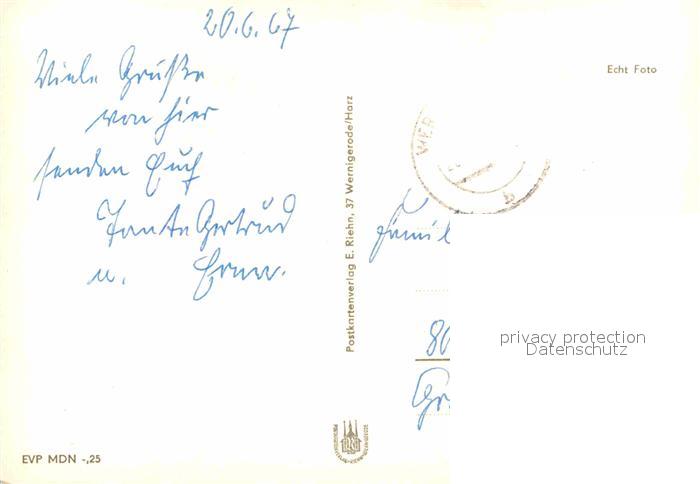 20.6.67
Viele Grüße
von hier
senden Euch
Tante Gertrud
u. Erna.
EVP MDN -,25
Postkartenverlag E. Riehn, 37 Wernigerode/Harz
Echt Foto
WER
b
Famil
80
Gr
privacy protection
Datenschutz